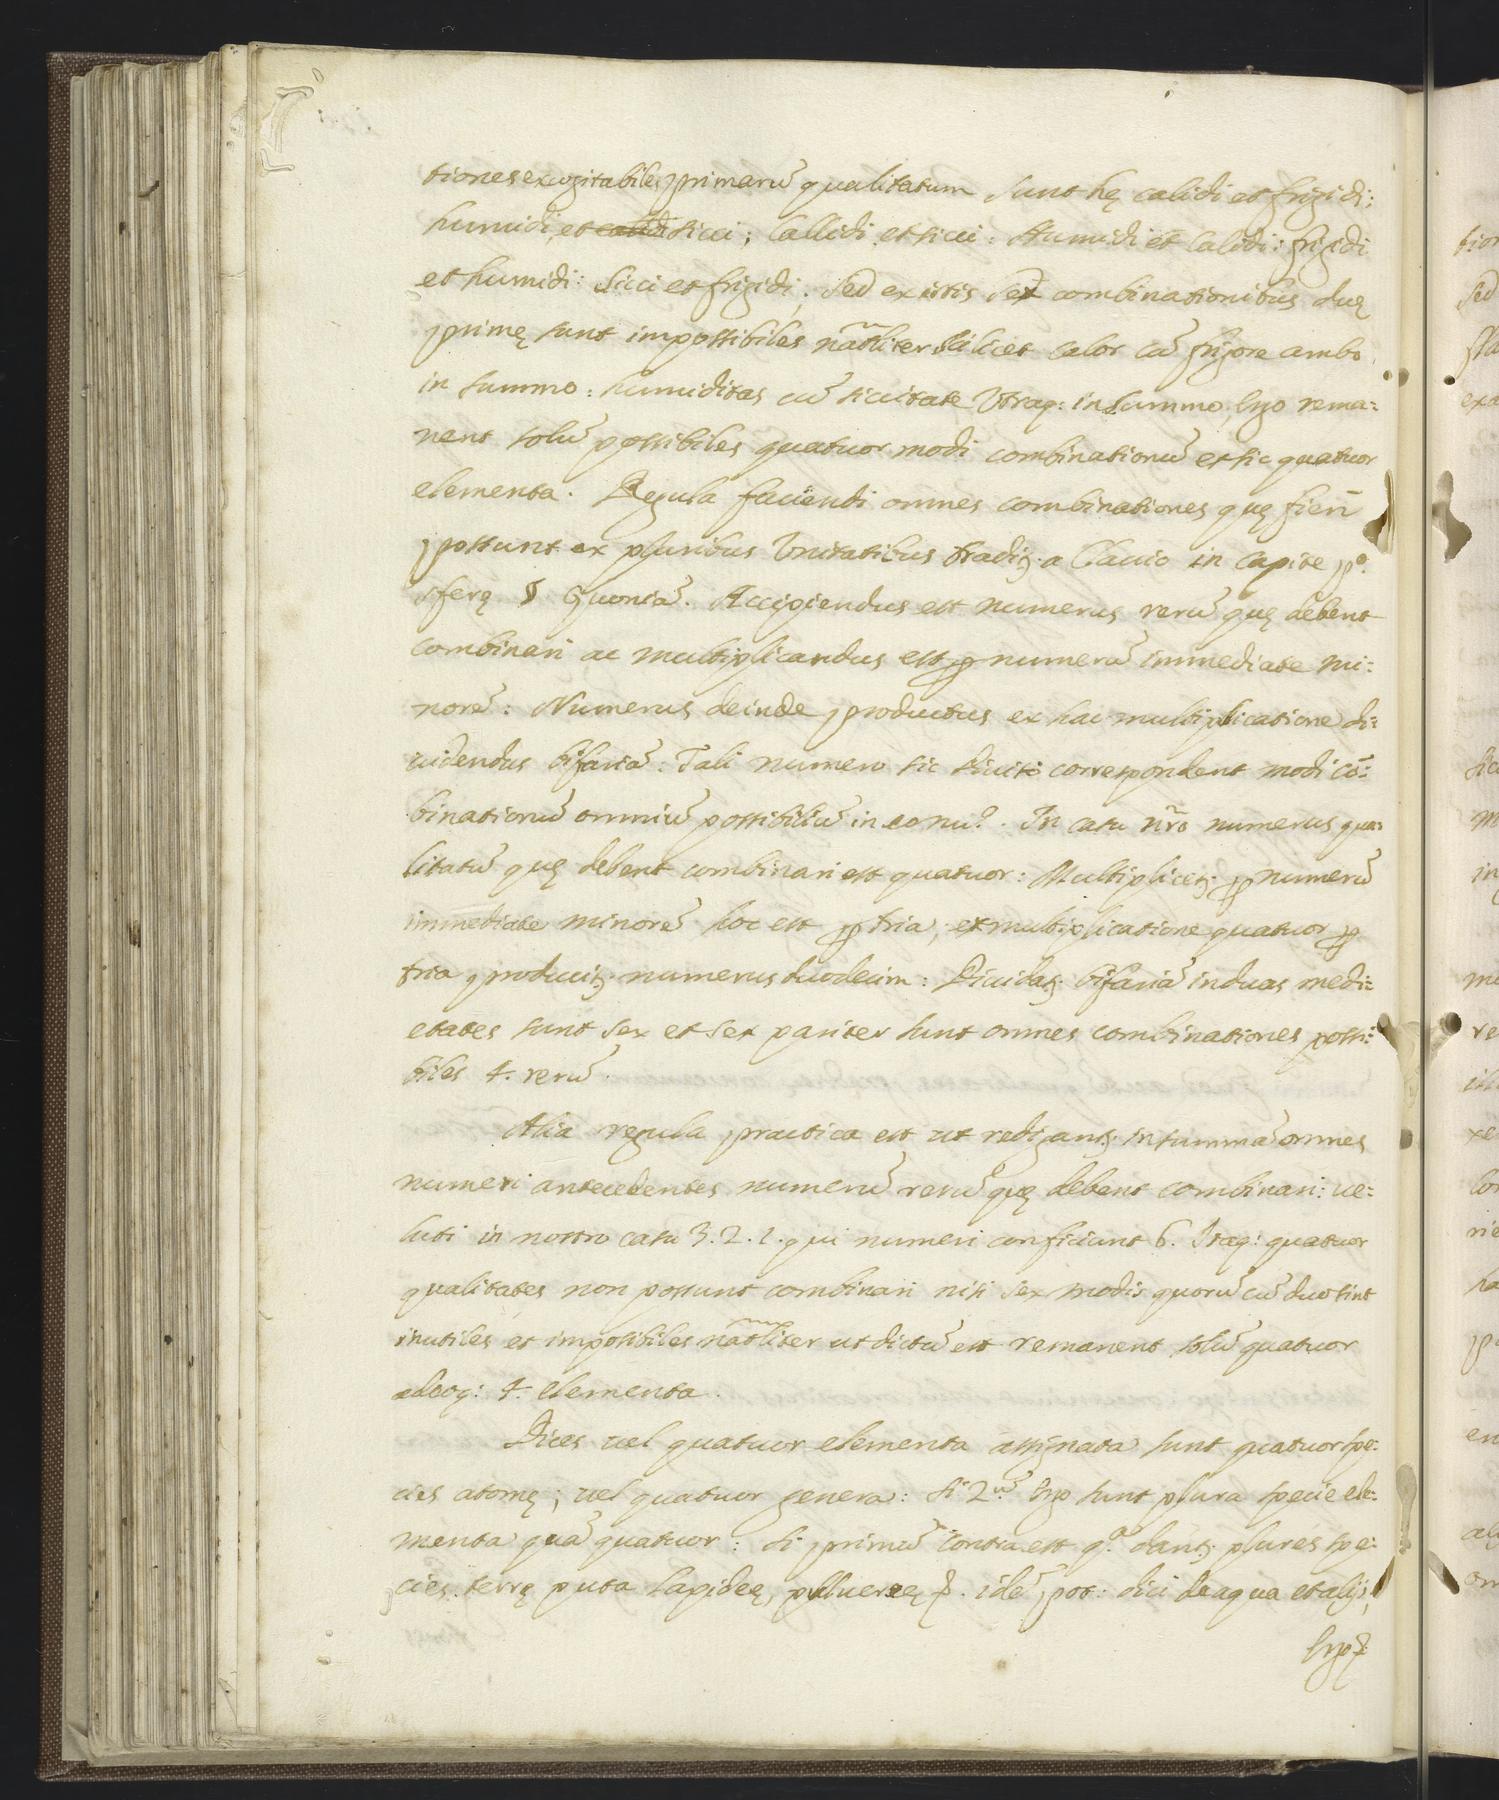 tiones excogitabiles primarū qualitatum sunt hę calidi et frigidi;
humidi, et calidi sicci; Callidi et sicci: Humidi et Calidi: frigidi
et humidi: Sicci et frigidi; Sed ex istis sex combinationibus duę
primę sunt impossibiles nāaliter scilicet calor cū frigore ambo
in summo: humiditas cū siccitate Vtraq: in summo, Ergo rema:
nent solū possibiles quatuor modi combinationū et sic quatuor
elementa. Regula faciendi omnes combinationes quę fieri
possunt ex pluribus Vnitatibus tradiť a Clauio in capite p.º
sferę § Quoniā. Accipiendus est numerus rerū quę debent
combinari ac multiplicandus est ꝑ numerū immediate mi:
norē: Numerus deinde productus ex hac multiplicatione di:
uidendus bifariā: Tali numero sic diuiso correspondent modi cō:
binationū omniū possibiliū in eo nu.º. In casu nr̃o numerus qua:
litatū quę debent combinari est quatuor: Multipliceť ꝑ numerū
immediate minorē hoc est ꝑ tria, ex multiplicatione quatuor ꝑ
tria produciť numerus duodecim: Diuidať bifariā in duas medi:
etates sunt sex et sex pariter sunt omnes combinationes possi:
biles 4. rerū.
Alia regula practica est ut rediganť in summā omnes
numeri antecedentes numerū rerū quę debent combinari: ue:
luti in nostro casu 3. 2. 1. qui numeri conficiunt 6. Itaq: quatuor
qualitates non possunt combinari nisi sex modis quorū cū duo sint
inutiles et impossibiles nāaliter ut dictū est remanent solū quatuor
adeoq: 4. elementa.
Dices uel quatuor elementa assignata sunt quatuor spe:
cies atomę; uel quatuor genera: si 2.ū Ergo sunt plura specie ele:
menta quā quatuor: si primū contra est q.ᵃ danť plures spe:
cies terrę puta lapideę, puluereę &. idē pot: dici de aqua et alijs,
Ergo &